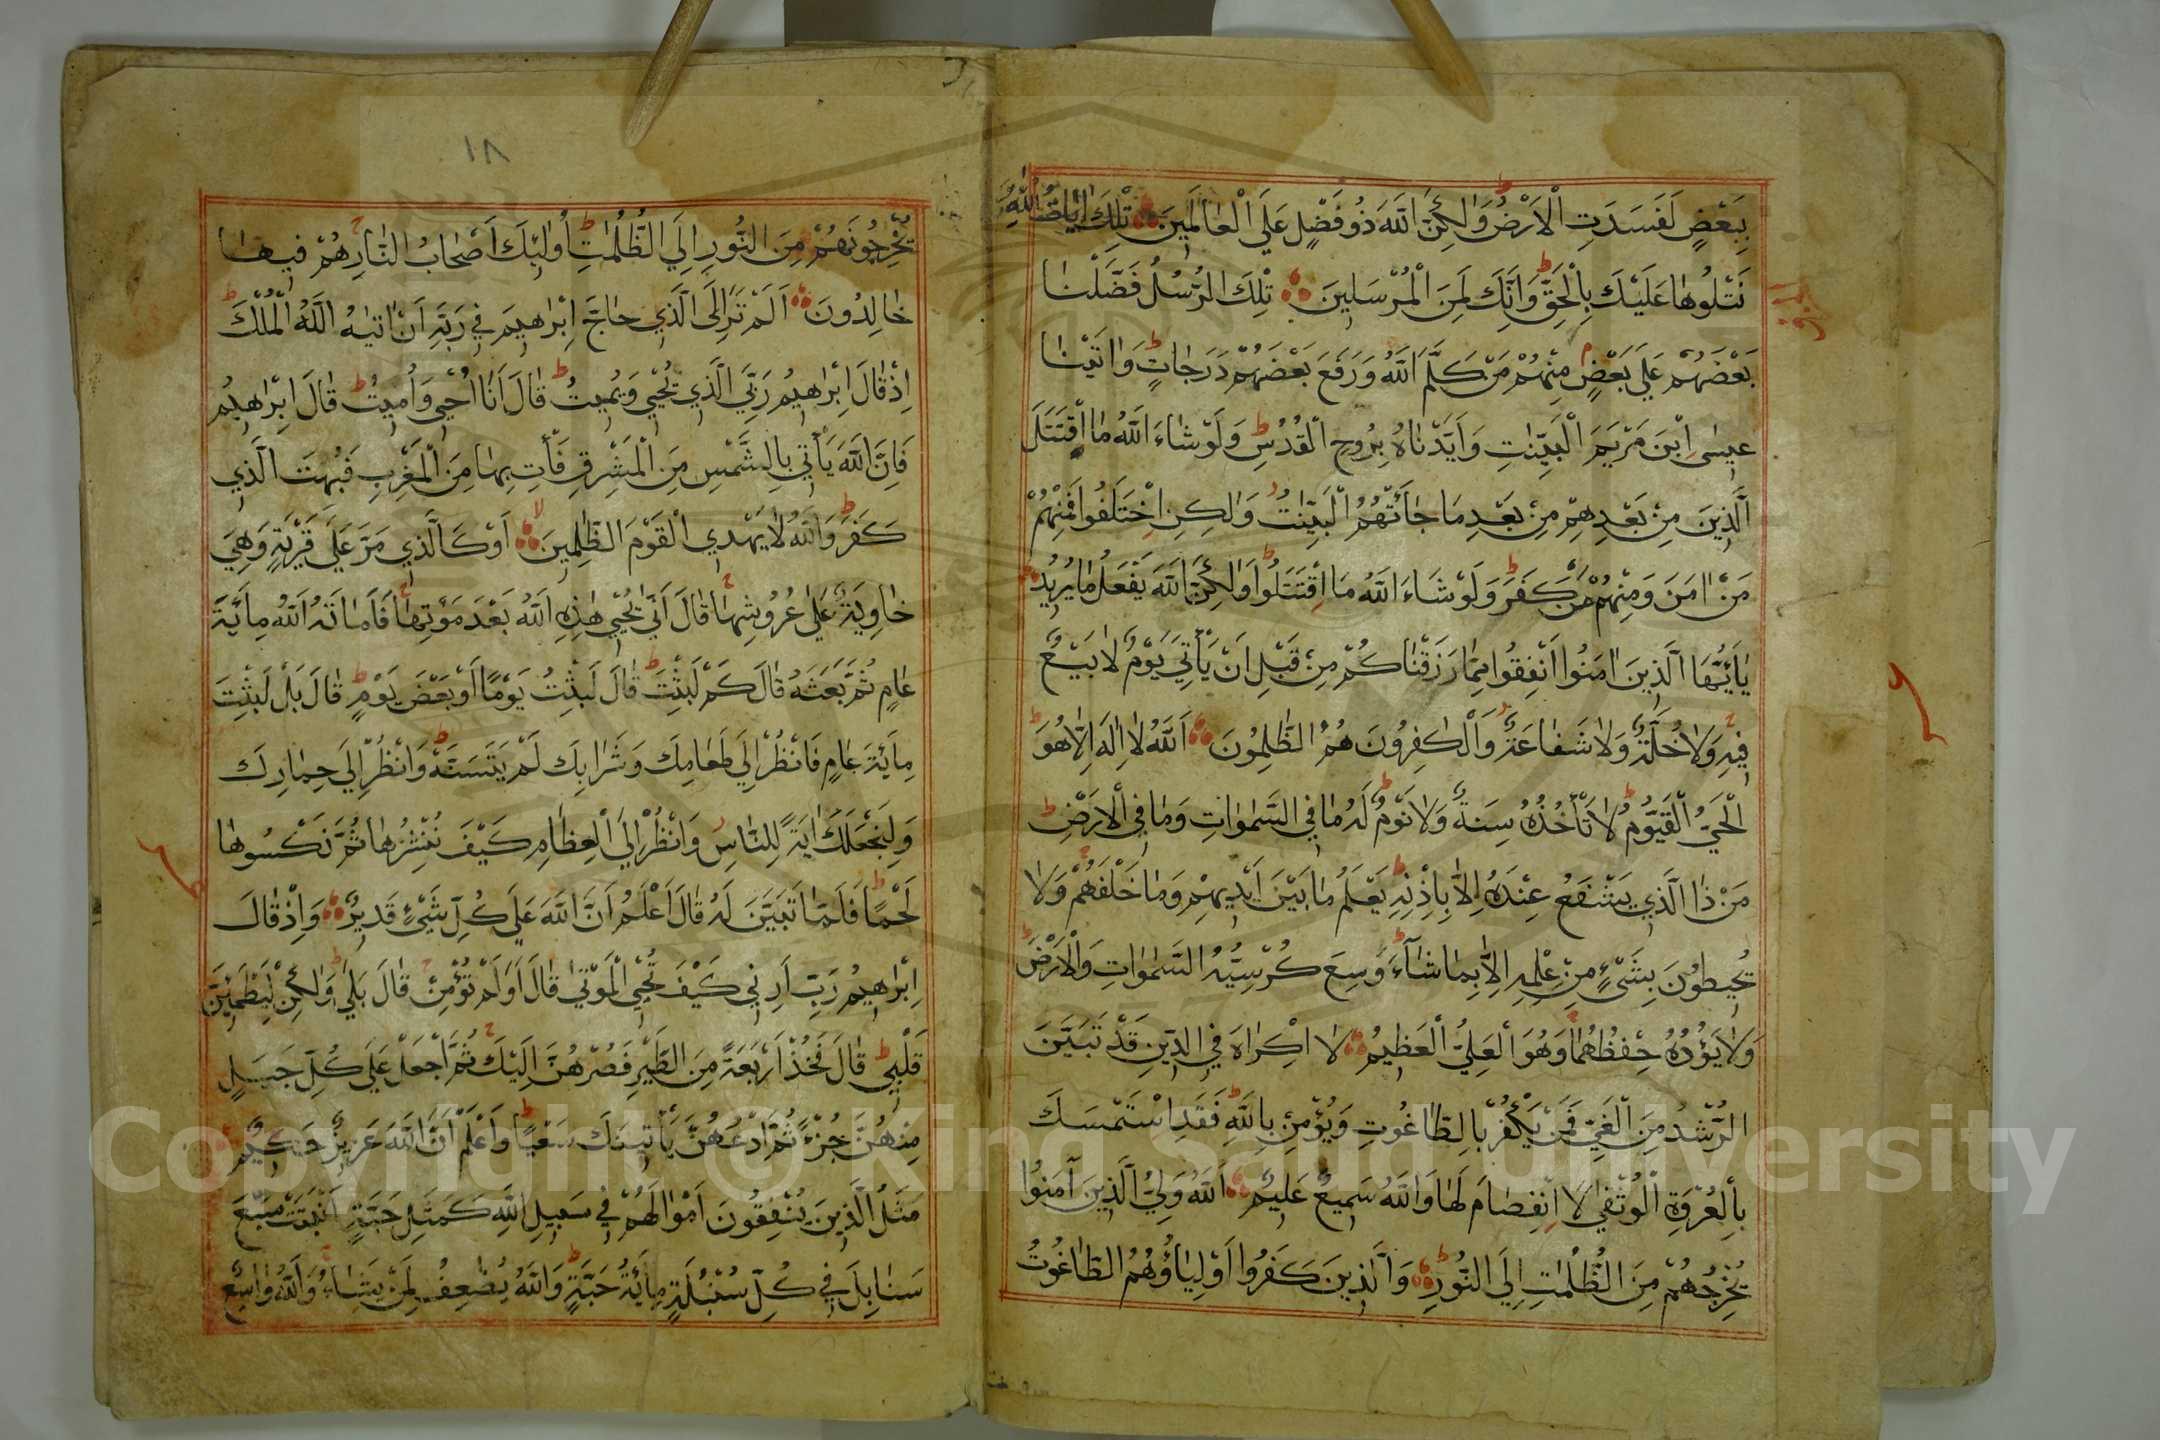 بِبَعْضٍ لَفَسَدَتِ الْاَرْضُ وَلٰكِنَّ اللّٰهَ ذُو فَضْلٍ عَلَى الْعٰالَمِينَ تِلْكَ اٰيٰاتُ اللّٰهِ
نَتْلُوهٰا عَلَيْكَ بِالْحَقِّ وَاِنَّكَ لَمِنَ الْمُرْسَلِينَ تِلْكَ الرُّسُلُ فَضَّلْنٰا
بَعْضَهُمْ عَلٰى بَعْضٍ مِنْهُمْ مَنْ كَلَّمَ اللّٰهُ وَرَفَعَ بَعْضَهُمْ دَرَجٰاتٍ وَاٰتَيْنٰا
عِيسٰى ابْنَ مَرْيَمَ الْبَيِّنٰاتِ وَاَيَّدْنٰاهُ بِرُوحِ الْقُدُسِ وَلَوْ شٰاءَ اللّٰهُ مٰا اقْتَتَلَ
الَّذِينَ مِنْ بَعْدِهِمْ مِنْ بَعْدِ مٰا جٰاءَتْهُمُ الْبَيِّنٰتُ وَلٰكِنِ اخْتَلَفُوا فَمِنْهُمْ
مَنْ اٰمَنَ وَمِنْهُمْ مَنْ كَفَرَ وَلَوْ شٰاءَ اللّٰهُ مٰا اقْتَتَلُوا وَلٰكِنَّ اللّٰهَ يَفْعَلُ مٰا يُرِيدُ
يٰاَيُّهَا الَّذِينَ اٰمَنُوا اَنْفِقُوا مِمّٰا رَزَقْنٰاكُمْ مِنْ قَبْلِ اَنْ يَأْتِيَ يَوْمٌ لٰا بَيْعٌ
فِيهِ وَلٰا خُلَّةٌ وَلٰا شَفٰاعَةٌ وَالْكٰفِرُونَ هُمُ الظّٰلِمُونَ اَللّٰهُ لٰا اِلٰهَ اِلّٰا هُوَ
الْحَيُّ الْقَيُّومُ لٰا تَأْخُذُهُ سِنَةٌ وَلٰا نَوْمٌ لَهُ مٰا فِي السَّمٰوٰاتِ وَمٰا فِي الْاَرْضِ
مَنْ ذَا الَّذِي يَشْفَعُ عِنْدَهُ اِلّٰا بِاِذْنِهِ يَعْلَمُ مٰا بَيْنَ اَيْدِيهِمْ وَمٰا خَلْفَهُمْ وَلٰا
يُحِيطُونَ بِشَيْءٍ مِنْ عِلْمِهِ اِلّٰا بِمٰا شٰاءَ وَسِعَ كُرْسِيُّهُ السَّمٰوٰاتِ وَالْاَرْضَ
وَلٰا يَؤُدُهُ حِفْظُهُمٰا وَهُوَ الْعَلِيُّ الْعَظِيمُ لٰا اِكْرٰاهَ فِي الدِّينِ قَدْ تَبَيَّنَ
الرُّشْدُ مِنَ الْغَيِّ فَمَنْ يَكْفُرْ بِالطّٰاغُوتِ وَيُؤْمِنْ بِاللّٰهِ فَقَدِ اسْتَمْسَكَ
بِالْعُرْوَةِ الْوُثْقٰى لَا انْفِصَامَ لَهٰا وَاللّٰهُ سَمِيعٌ عَلِيمٌ اَللّٰهُ وَلِيُّ الَّذِينَ آمَنُوا
يُخْرِجُهُمْ مِنَ الظُّلُمٰتِ اِلَى النُّورِ وَالَّذِينَ كَفَرُوا اَوْلِيٰاؤُهُمُ الطّٰاغُوتُ
١٨
يُخْرِجُونَهُمْ مِنَ النُّورِ اِلَى الظُّلُمٰتِ اُولٰئِكَ اَصْحٰابُ النّٰارِ هُمْ فِيهٰا
خٰالِدُونَ اَلَمْ تَرَ اِلَى الَّذِي حٰاجَّ اِبْرٰاهِيمَ فِي رَبِّهِ اَنْ اٰتٰيهُ اللّٰهُ الْمُلْكَ
اِذْ قٰالَ اِبْرٰاهِيمُ رَبِّيَ الَّذِي يُحْيِي وَيُمِيتُ قٰالَ اَنَا اُحْيِي وَاُمِيتُ قٰالَ اِبْرٰاهِيمُ
فَاِنَّ اللّٰهَ يَأْتِي بِالشَّمْسِ مِنَ الْمَشْرِقِ فَأْتِ بِهٰا مِنَ الْمَغْرِبِ فَبُهِتَ الَّذِي
كَفَرَ وَاللّٰهُ لٰا يَهْدِي الْقَوْمَ الظّٰلِمِينَ اَوْ كَالَّذِي مَرَّ عَلٰى قَرْيَةٍ وَهِيَ
خٰاوِيَةٌ عَلٰى عُرُوشِهٰا قٰالَ اَنّٰى يُحْيِي هٰذِهِ اللّٰهُ بَعْدَ مَوْتِهٰا فَاَمٰاتَهُ اللّٰهُ مِايَةَ
عٰامٍ ثُمَّ بَعَثَهُ قٰالَ كَمْ لَبِثْتَ قٰالَ لَبِثْتُ يَوْمًا اَوْ بَعْضَ يَوْمٍ قٰالَ بَلْ لَبِثْتَ
مِايَةَ عٰامٍ فَانْظُرْ اِلٰى طَعٰامِكَ وَشَرٰابِكَ لَمْ يَتَسَنَّهْ وَانْظُرْ اِلٰى حِمٰارِكَ
وَلِنَجْعَلَكَ اٰيَةً لِلنّٰاسِ وَانْظُرْ اِلَى الْعِظٰامِ كَيْفَ نُنْشِزُهٰا ثُمَّ نَكْسُوهٰا
لَحْمًا فَلَمّٰا تَبَيَّنَ لَهُ قٰالَ اَعْلَمُ اَنَّ اللّٰهَ عَلٰى كُلِّ شَيْءٍ قَدِيرٌ وَاِذْ قٰالَ
اِبْرٰاهِيمُ رَبِّ اَرِنِي كَيْفَ تُحْيِي الْمَوْتٰى قٰالَ اَوَلَمْ تُؤْمِنْ قٰالَ بَلٰى وَلٰكِنْ لِيَطْمَئِنَّ
قَلْبِي قٰالَ فَخُذْ اَرْبَعَةً مِنَ الطَّيْرِ فَصُرْهُنَّ اِلَيْكَ ثُمَّ اجْعَلْ عَلٰى كُلِّ جَبَلٍ
مِنْهُنَّ جُزْءً ثُمَّ ادْعُهُنَّ يَأْتِينَكَ سَعْيًا وَاعْلَمْ اَنَّ اللّٰهَ عَزِيزٌ حَكِيمٌ
مَثَلُ الَّذِينَ يُنْفِقُونَ اَمْوٰالَهُمْ فِي سَبِيلِ اللّٰهِ كَمَثَلِ حَبَّةٍ اَنْبَتَتْ سَبْعَ
سَنٰابِلَ فِي كُلِّ سُنْبُلَةٍ مِايَةُ حَبَّةٍ وَاللّٰهُ يُضٰعِفُ لِمَنْ يَشٰاءُ وَاللّٰهُ وٰاسِعٌ
Copyright © King Saud University